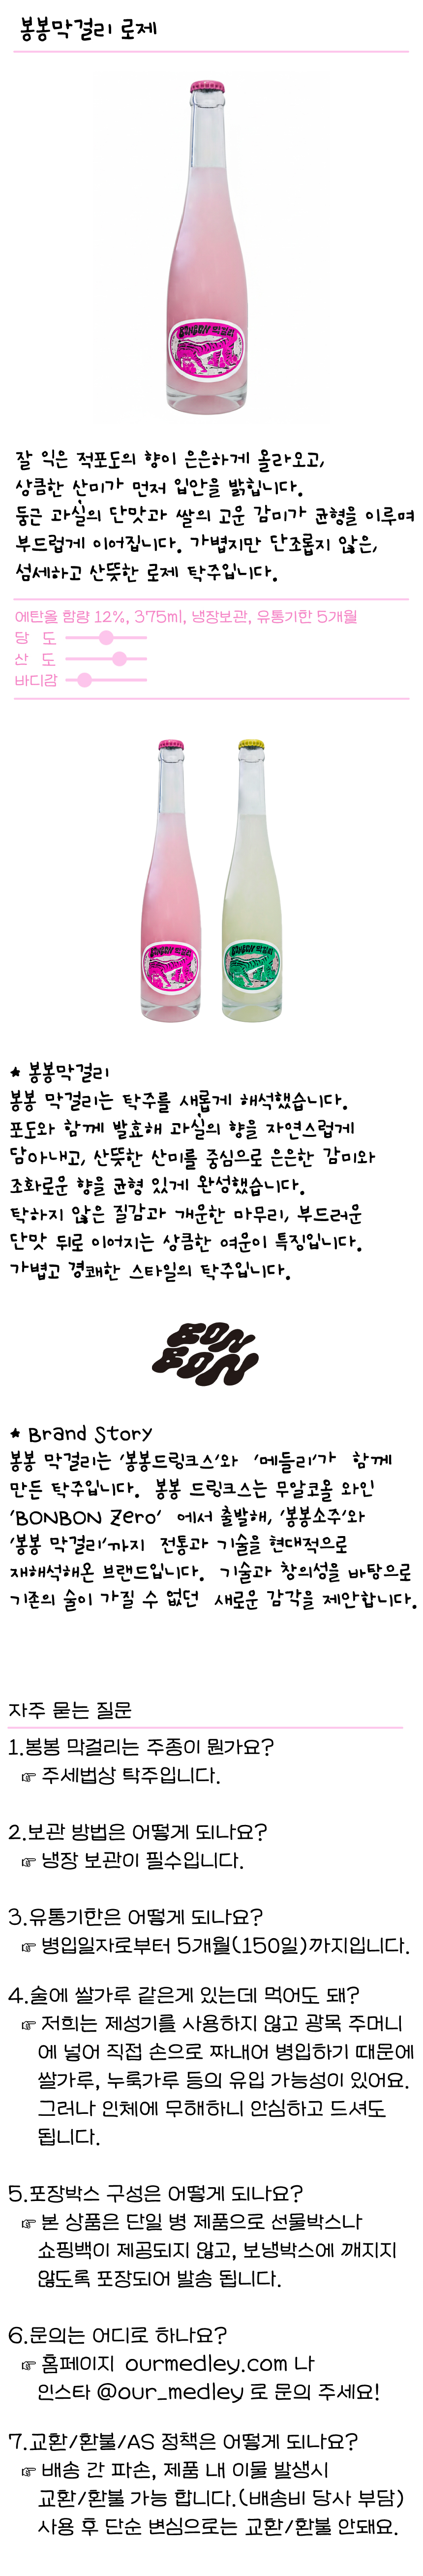 봉봉막걸리 로제
BONBON 막걸리
잘 익은 적포도의 향이 은은하게 올라오고,
상큼한 산미가 먼저 입안을 밝힙니다.
둥근 과실의 단맛과 쌀의 고운 감미가 균형을 이루며
부드럽게 이어집니다. 가볍지만 단조롭지 않은,
섬세하고 산뜻한 로제 탁주입니다.
에탄올 함량 12%, 375ml, 냉장보관, 유통기한 5개월
당 도
산 도
바디감
BONBON 막걸리
BONBON 막걸리
★ 봉봉막걸리
봉봉 막걸리는 탁주를 새롭게 해석했습니다.
포도와 함께 발효해 과실의 향을 자연스럽게
담아내고, 산뜻한 산미를 중심으로 은은한 감미와
조화로운 향을 균형 있게 완성했습니다.
탁하지 않은 질감과 개운한 마무리, 부드러운
단맛 뒤로 이어지는 상큼한 여운이 특징입니다.
가볍고 경쾌한 스타일의 탁주입니다.
BON
BON
★ Brand Story
봉봉 막걸리는 '봉봉드링크스'와 '메들리'가 함께
만든 탁주입니다. 봉봉 드링크스는 무알코올 와인
'BONBON Zero' 에서 출발해, '봉봉소주'와
'봉봉 막걸리'까지 전통과 기술을 현대적으로
재해석해온 브랜드입니다. 기술과 창의성을 바탕으로
기존의 술이 가질 수 없던 새로운 감각을 제안합니다.
자주 묻는 질문
1.봉봉 막걸리는 주종이 뭔가요?
☞ 주세법상 탁주입니다.
2.보관 방법은 어떻게 되나요?
☞ 냉장 보관이 필수입니다.
3.유통기한은 어떻게 되나요?
☞ 병입일자로부터 5개월(150일)까지입니다.
4.술에 쌀가루 같은게 있는데 먹어도 돼?
☞ 저희는 제성기를 사용하지 않고 광목 주머니
에 넣어 직접 손으로 짜내어 병입하기 때문에
쌀가루, 누룩가루 등의 유입 가능성이 있어요.
그러나 인체에 무해하니 안심하고 드셔도
됩니다.
5.포장박스 구성은 어떻게 되나요?
☞ 본 상품은 단일 병 제품으로 선물박스나
쇼핑백이 제공되지 않고, 보냉박스에 깨지지
않도록 포장되어 발송 됩니다.
6.문의는 어디로 하나요?
☞ 홈페이지 ourmedley.com 나
인스타 @our_medley 로 문의 주세요!
7.교환/환불/AS 정책은 어떻게 되나요?
☞ 배송 간 파손, 제품 내 이물 발생시
교환/환불 가능 합니다.(배송비 당사 부담)
사용 후 단순 변심으로는 교환/환불 안돼요.